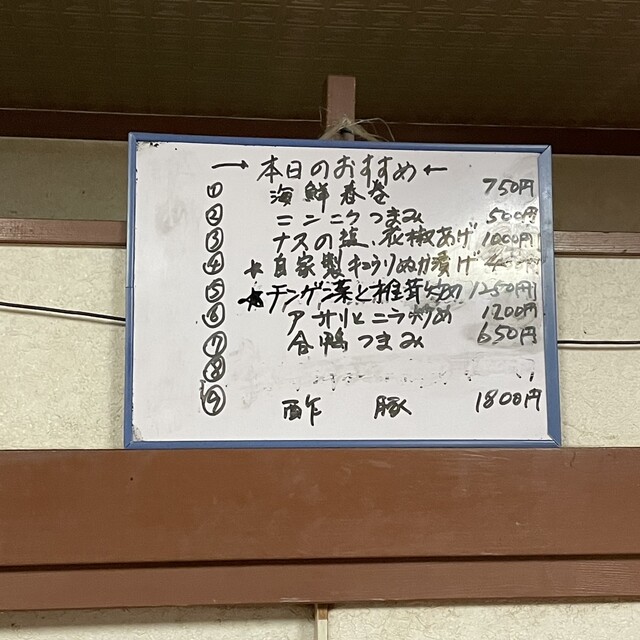 →本日のおすすめ←
① 海鮮春巻 750円
② ニンニクつまみ 500円
③ ナスの塩、花椒あげ 1000円
④ ☆自家製キウリぬか漬け 円
⑤ ☆チンゲン菜と椎茸炒め 1250円
⑥ アサリとニラ炒め 1200円
⑦ 合鴨つまみ 650円
⑧
⑨ 酢豚 1800円